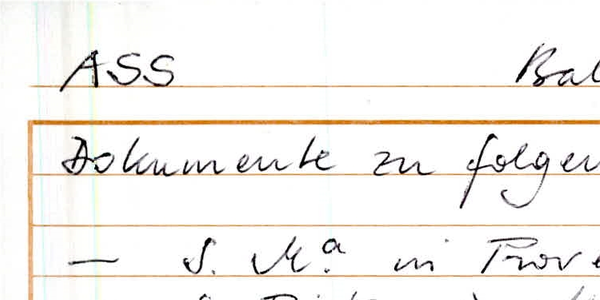 ASS Bal
Dokumente zu folgen
— S. Mª. in Prove